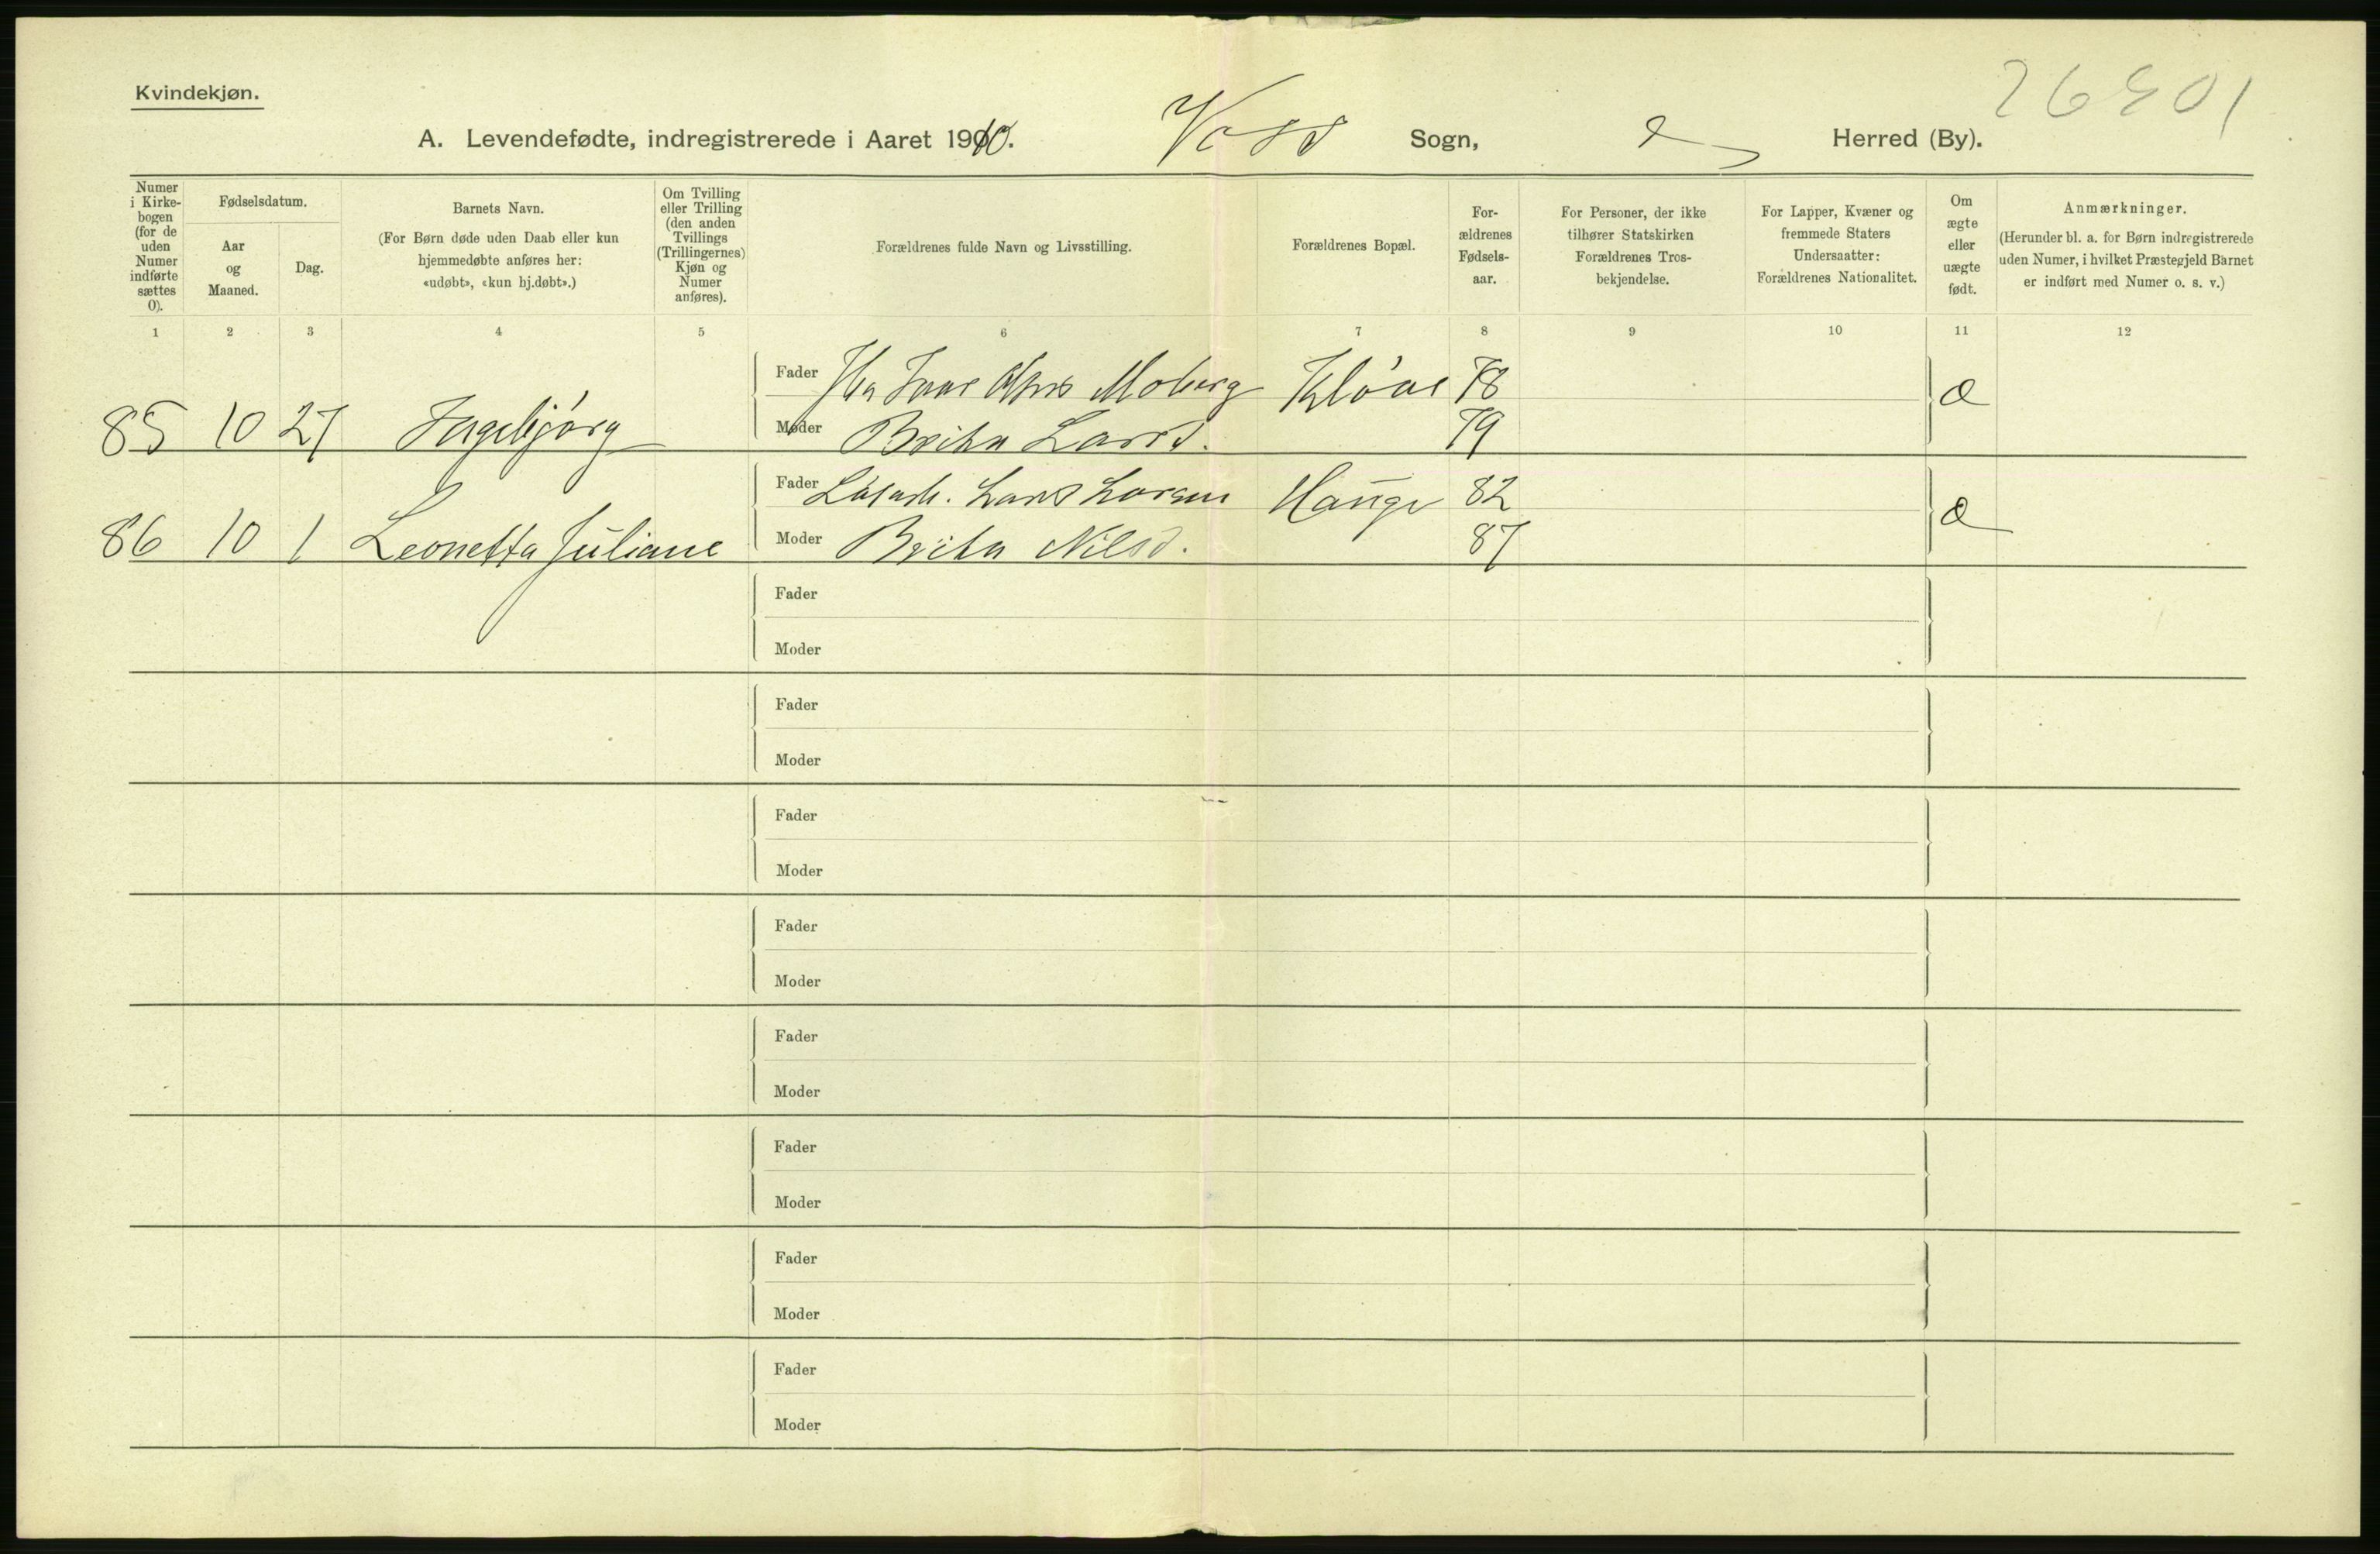 Kvindekjøn.
26901
A. Levendefødte, indregistrerede i Aaret 1910. Voss Sogn, Herred (By).
Numer i Kirke-bogen (for de uden Numer indførte sættes 0).
Fødselsdatum.
Aar og Maaned.
Dag.
Barnets Navn.
(For Børn døde uden Daab eller kun
hjemmedøbte anføres her:
«udøbt», «kun hj.døbt».)
Om Tvilling
eller Trilling
(den anden
Tvillings
(Trillingernes)
Kjøn og
Numer
anføres).
Forældrenes fulde Navn og Livsstilling.
Forældrenes Bopæl.
For-
ældrenes
Fødsels-
aar.
For Personer, der ikke
tilhører Statskirken
Forældrenes Tros-
bekjendelse.
For Lapper, Kvæner og
fremmede Staters
Undersaatter:
Forældrenes Nationalitet.
Om
ægte
eller
uægte
født.
Anmærkninger.
(Herunder bl. a. for Børn indregistrerede
uden Numer, i hvilket Præstegjeld Barnet
er indført med Numer o. s. v.)
1 2 3 4 5 6 7 8 9 10 11 12
Fader Moberg Kløve 78 æ
85 10 27 Ingebjørg Moder Britha Larsd. 79
Fader Lars Larsen Hauge 82 æ
86 10 1 Leonetta Juliane Moder Britha Nilsd. 87
Fader
Moder
Fader
Moder
Fader
Moder
Fader
Moder
Fader
Moder
Fader
Moder
Fader
Moder
Fader
Moder